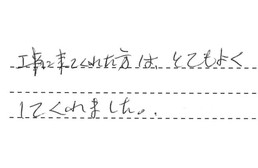 工事に来てくれた方は、とてもよく
してくれました。